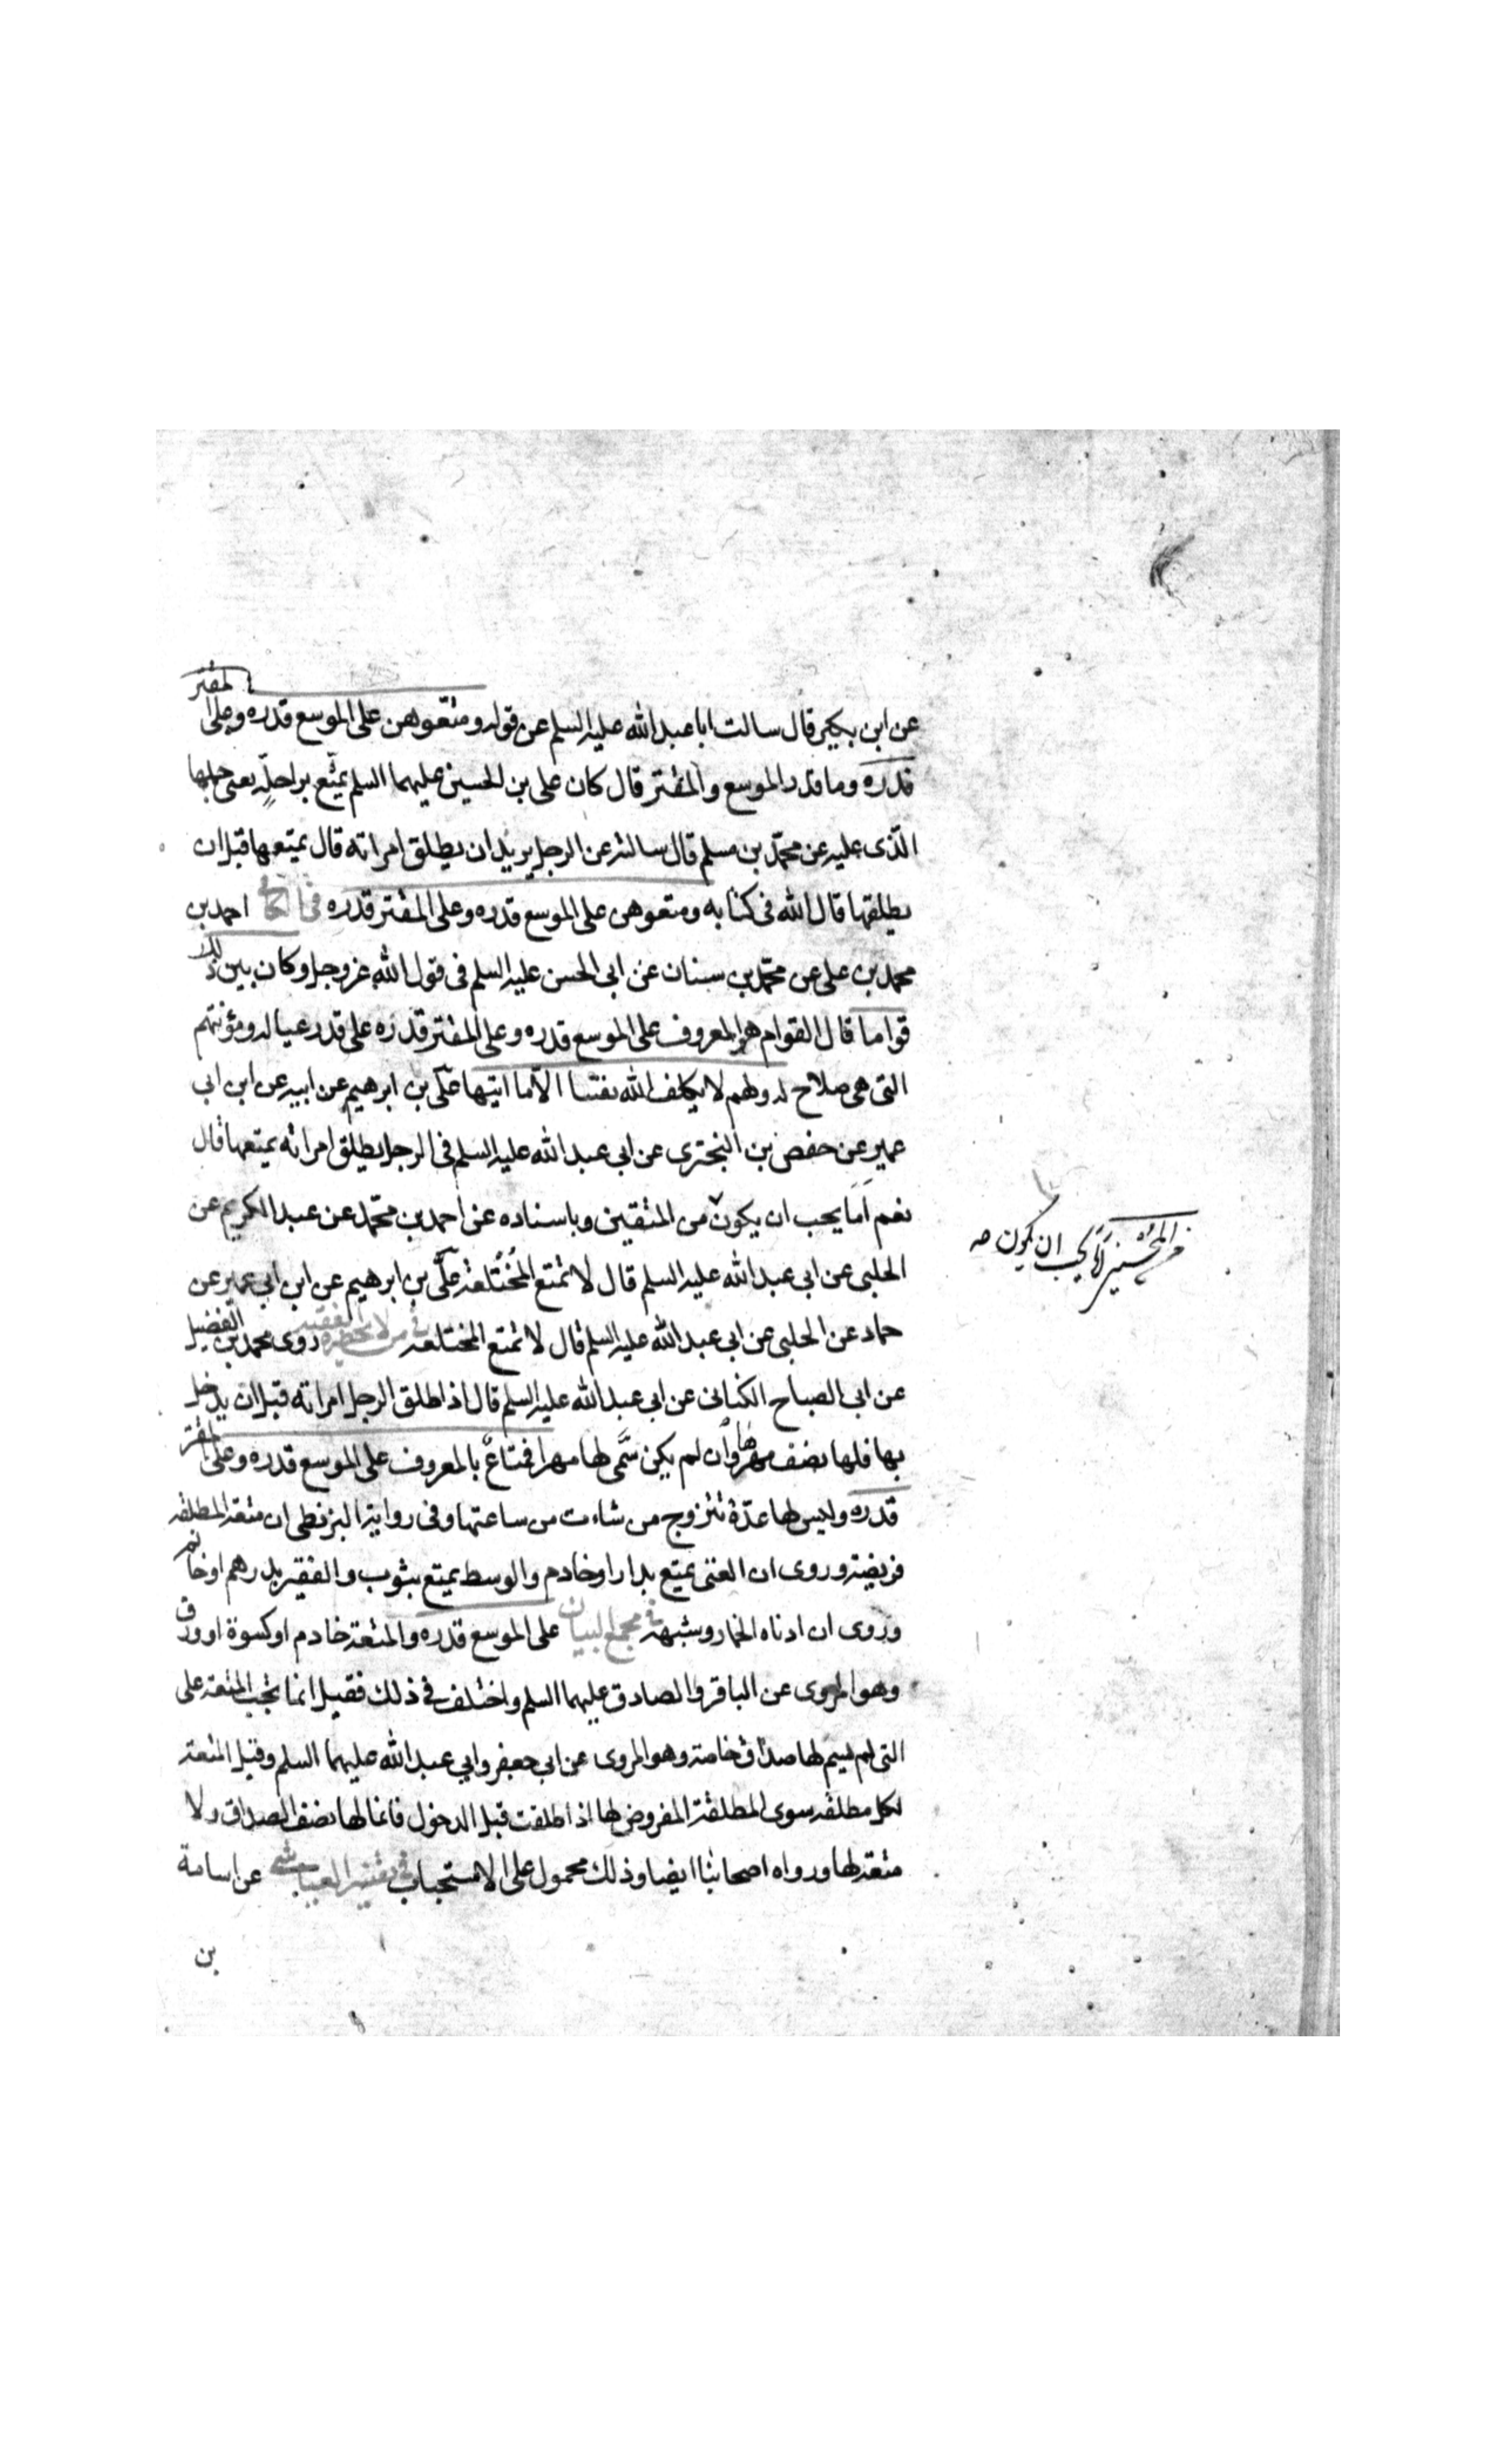 عن ابن بكير قال سالت ابا عبد الله عليه السلم عن قوله ومتعوهن على الموسع قدره وعلى المقتر
قدره وما قدر الموسع والمقتر قال كان على بن الحسين عليهما السلم يمتع براحلة يعنى حملها
الذى عليه عن محمد بن مسلم قال سالته عن الرجل يريد ان يطلق امراته قال يمتعها قبل ان
يطلقها قال الله فى كتابه ومتعوهن على الموسع قدره وعلى المقتر قدره فى الكافى احمد بن
محمد بن على عن محمد بن سنان عن ابى الحسن عليه السلم فى قول الله عز وجل وكان بين ذلك
قواما قال القوام هو المعروف على الموسع قدره وعلى المقتر قدره على قدر عياله ومؤنتهم
التى هى صلاح له ولهم لا يكلف الله نفسا الا ما اتيها على بن ابرهيم عن ابيه عن ابن ابى
عمير عن حفص بن البخترى عن ابى عبد الله عليه السلم فى الرجل يطلق امراته يمتعها قال
نعم اما يحب ان يكون من المتقين وباسناده عن احمد بن محمد عن عبد الكريم عن
من المحسنين اما يحب ان يكون صه
الحلبى عن ابى عبد الله عليه السلم قال لا تمتع المختلعة على بن ابرهيم عن ابن ابى عمير عن
حماد عن الحلبى عن ابى عبد الله عليه السلم قال لا تمتع المختلعة فى من لا يحضره الفقيه روى محمد بن الفضيل
عن ابى الصباح الكنانى عن ابى عبد الله عليه السلم قال اذا طلق الرجل امراته قبل ان يدخل
بها فلها نصف مهرها وان لم يكن سمى لها مهرا فمتاع بالمعروف على الموسع قدره وعلى المقتر
قدره وليس لها عدة تتزوج من شاءت من ساعتها وفى رواية البزنطى ان متعة المطلقه
فريضة وروى ان الغنى يمتع بدار او خادم والوسط يمتع بثوب والفقير بدرهم او خاتم
وروى ان ادناه الخمار وشبهه فى مجمع البيان على الموسع قدره والمتعة خادم او كسوة او ورق
وهو المروى عن الباقر والصادق عليهما السلم واختلف فى ذلك فقيل انما تجب المتعة على
التى لم يسم لها صداق خاصة وهو المروى عن ابى جعفر وابى عبد الله عليهما السلم وقيل المتعة
لكل مطلقه سوى المطلقة المفروض لها اذا طلقت قبل الدخول فانما لها نصف الصداق ولا
متعة لها ورواه اصحابنا ايضا وذلك محمول على الاستحباب فى تفسير العياشى عن اسامة
بن